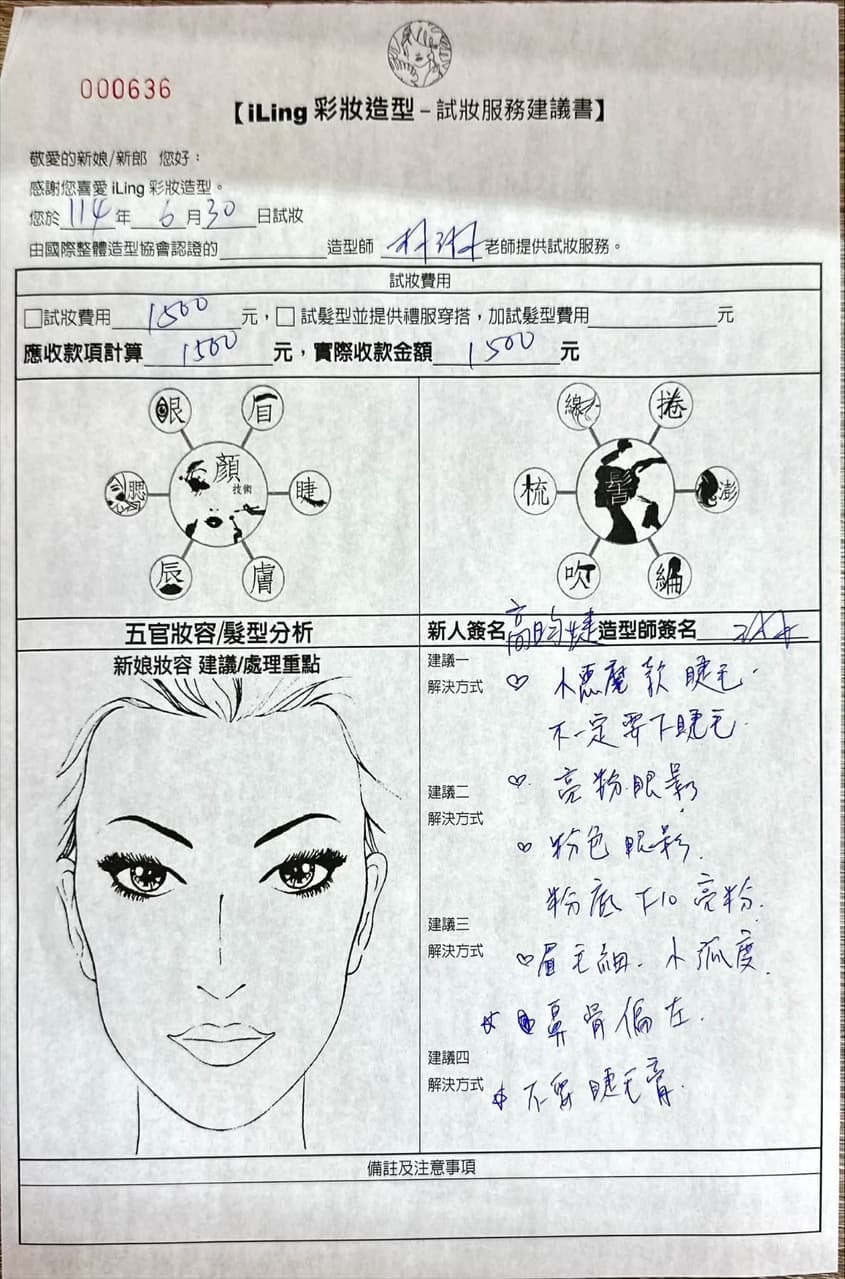 000636
【iLing 彩妝造型－試妝服務建議書】
敬愛的新娘/新郎 您好：
感謝您喜愛 iLing 彩妝造型。
您於 114 年 6 月 30 日試妝
由國際整體造型協會認證的 造型師 老師提供試妝服務。
試妝費用
□試妝費用 1500 元，□ 試髮型並提供禮服穿搭，加試髮型費用 元
應收款項計算 1500 元，實際收款金額 1500 元
眼 眉
腮 顏 技術 睫
唇 膚
線 捲
梳 髻 澎
吹 編
五官妝容/髮型分析
新人簽名 高昀婕 造型師簽名
新娘妝容 建議/處理重點
建議一
解決方式 ♡ 小惡魔款 睫毛.
不一定要下睫毛.
建議二 ♡ 亮粉眼影
解決方式
♡ 粉色眼影.
粉底 加 亮粉.
建議三
解決方式 ♡眉毛細. 小弧度.
☆ 鼻骨偏左.
建議四
解決方式 ☆ 不要睫毛膏.
備註及注意事項